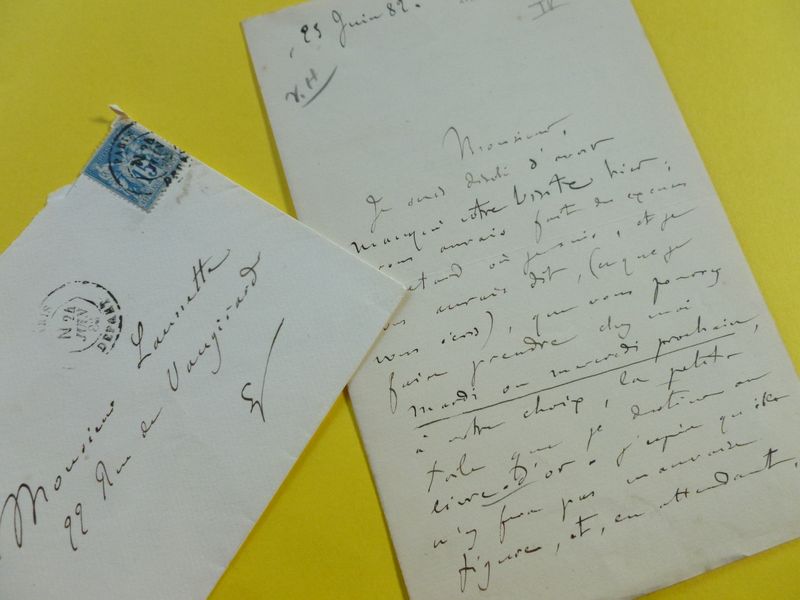 25 Juin 82.
V.H
Monsieur,
Je suis désolé d'avoir
manqué votre visite hier;
vous aurais fait des excuses
retard où je suis, et je
vous aurais dit, (ce que je
vous écris), que vous pourrez
faire prendre chez moi
mardi ou mercredi prochain,
à votre choix, la petite
toile que je destine au
livre-d'or. J'espère qu'elle
n'y fera pas mauvaise
figure, et, en attendant,
15
PARIS
DEPART
Monsieur Launette
22 Rue de Vaugirard
EV